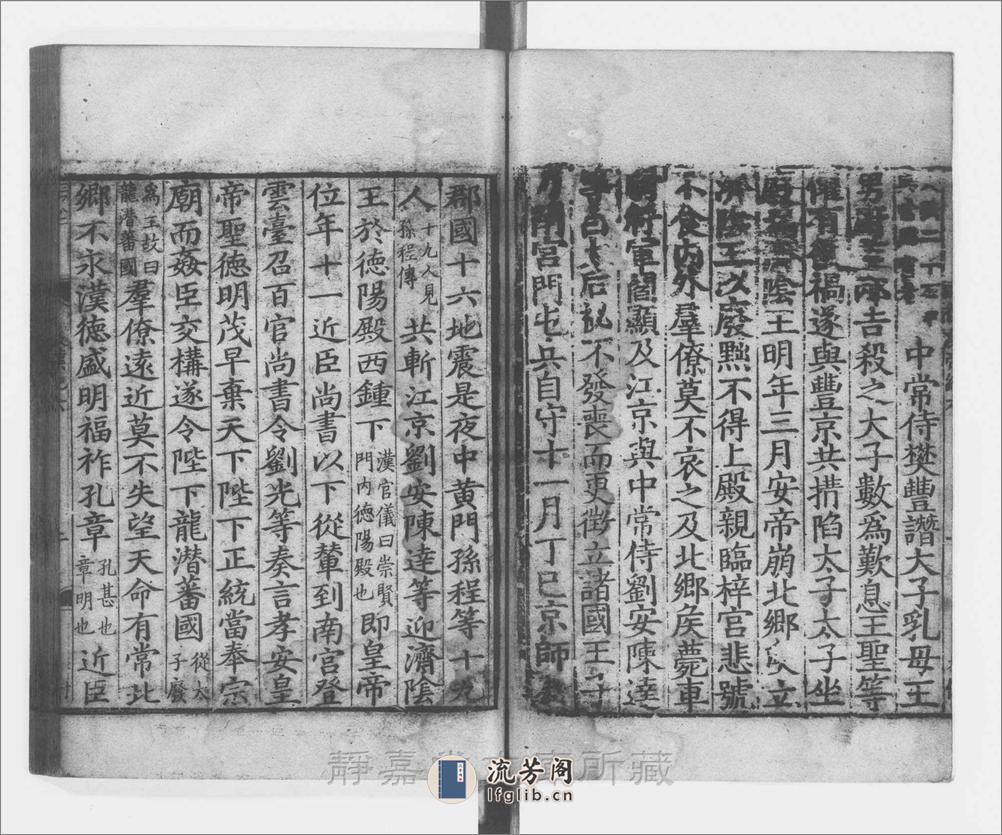 中常侍樊豐譖大子乳母王
男廚監邴吉殺之大子數為歎息王聖等
懼有後禍遂與豐京共搆陷太子太子坐
廢為濟陰王明年三月安帝崩北鄉侯立
濟陰王以廢黜不得上殿親臨梓宮悲號
不食內外羣僚莫不哀之及北鄉侯薨車
騎將軍閻顯及江京與中常侍劉安陳達
等白太后祕不發喪而更徵立諸國王子
乃閉宮門屯兵自守十一月丁巳京師及
郡國十六地震是夜中黃門孫程等十九
人十九人見孫程傳共斬江京劉安陳達等迎濟陰
王於德陽殿西鍾下漢官儀曰崇賢門內德陽殿也即皇帝
位年十一近臣尚書以下從輦到南宮登
雲臺召百官尚書令劉光等奏言孝安皇
帝聖德明茂早棄天下陛下正統當奉宗
廟而姦臣交構遂令陛下龍潛蕃國從太子廢
為王故曰龍潛蕃國羣僚遠近莫不失望天命有常北
鄉不永漢德盛明福祚孔章孔甚也章明也近臣
靜嘉堂文庫所藏
流芳阁
lfglib.cn